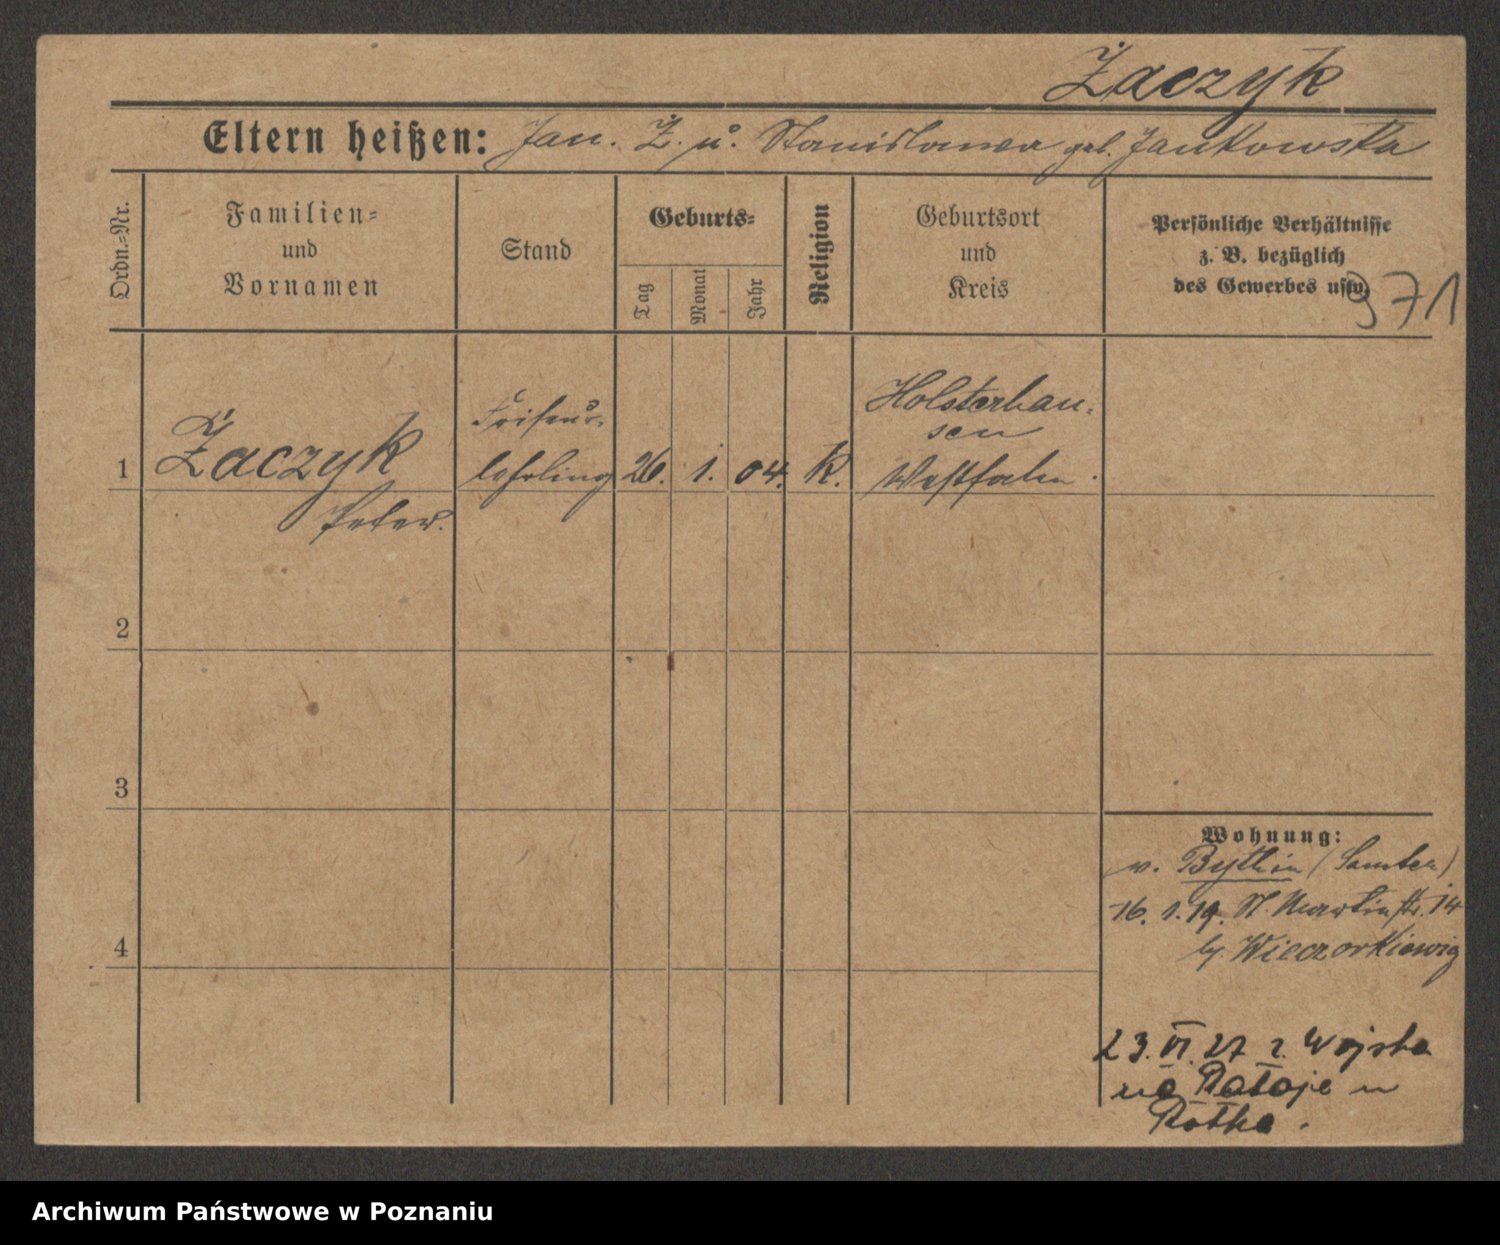 Żaczyk
Eltern heißen: Jan. Ż. u. Stanislawa geb. Jankowska
Ordn.-Nr.
Familien-
und
Vornamen
Stand
Geburts-
Tag
Monat
Jahr
Religion
Geburtsort
und
Kreis
Persönliche Verhältnisse
z. B. bezüglich
des Gewerbes usw.
971
1
Żaczyk
Peter.
Friseur-
lehrling
26.
1.
04.
K.
Holsterhau-
sen
Westfalen.
2
3
4
Wohnung:
v. Bythin (Samter)
16. 1. 19. St. Martinstr. 14
b/. Wieczorkiewig
23. VI. 27 z. Wojska
na Rataje u
Rotha.
Archiwum Państwowe w Poznaniu